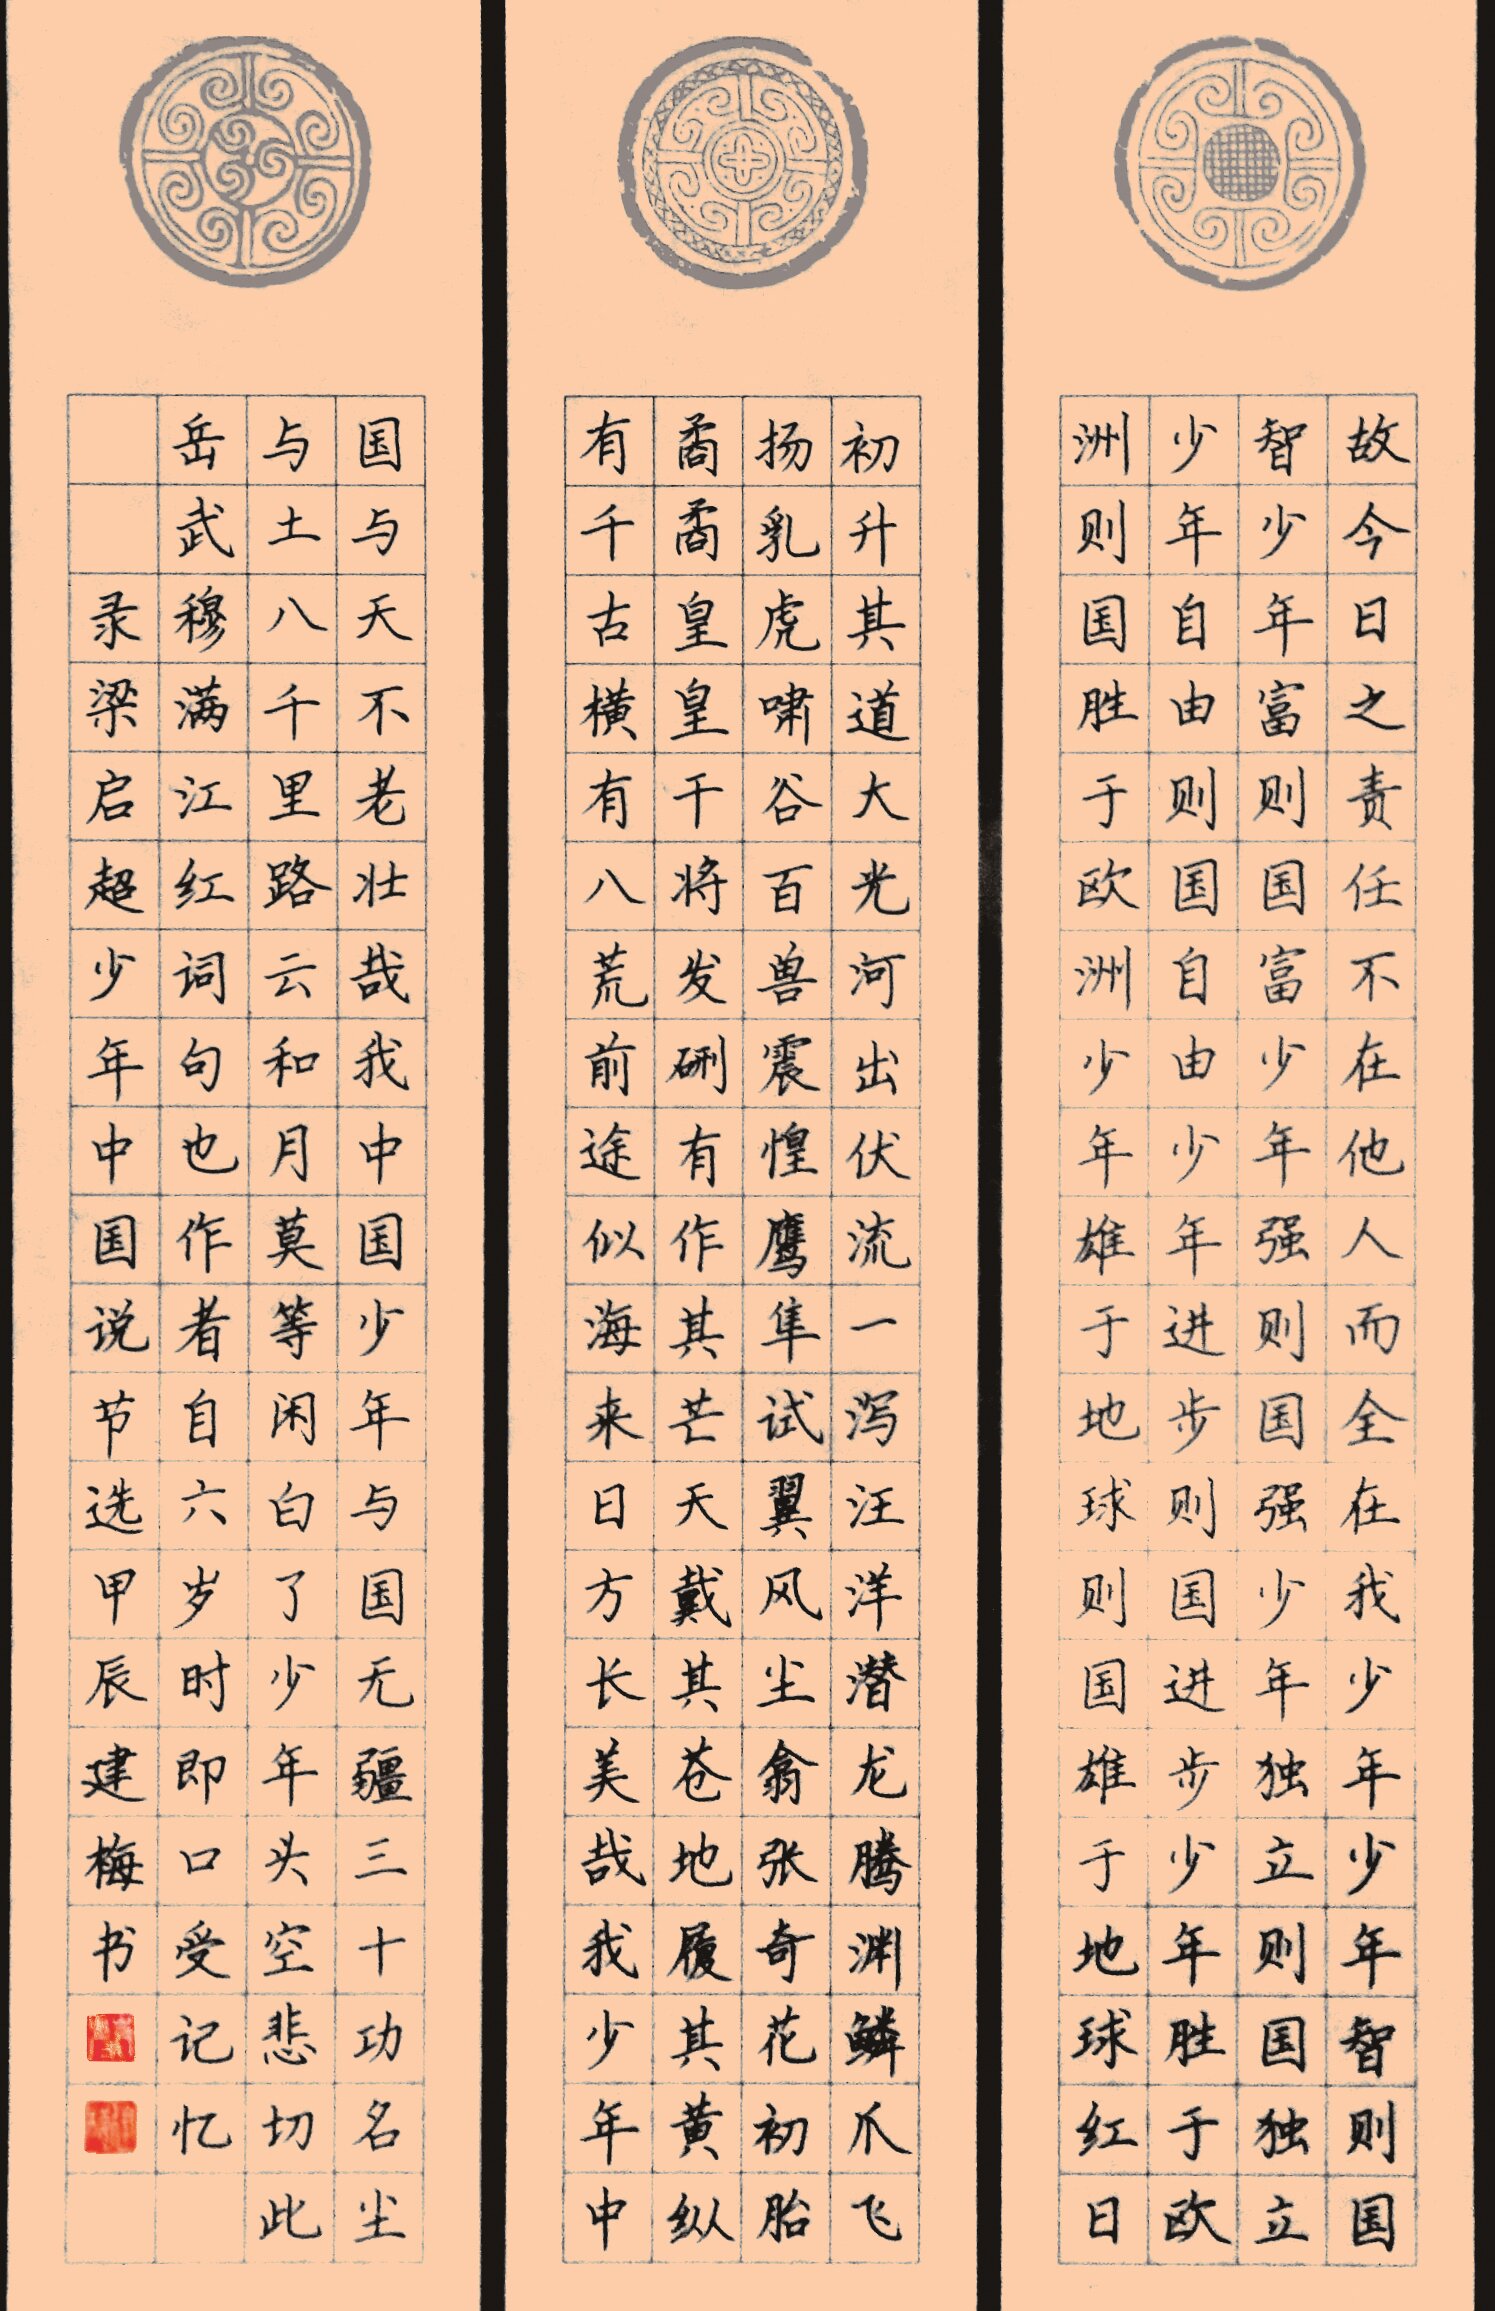 故今日之责任不在他人而全在我少年少年智则国
智少年富则国富少年强则国强少年独立则国独立
少年自由则国自由少年进步则国进步少年胜于欧
洲则国胜于欧洲少年雄于地球则国雄于地球红日
初升其道大光河出伏流一泻汪洋潜龙腾渊鳞爪飞
扬乳虎啸谷百兽震惶鹰隼试翼风尘翕张奇花初胎
矞矞皇皇干将发硎有作其芒天戴其苍地履其黄纵
有千古横有八荒前途似海来日方长美哉我少年中
国与天不老壮哉我中国少年与国无疆三十功名尘
与土八千里路云和月莫等闲白了少年头空悲切此
岳武穆满江红词句也作者自六岁时即口受记忆
录梁启超少年中国说节选甲辰建梅书